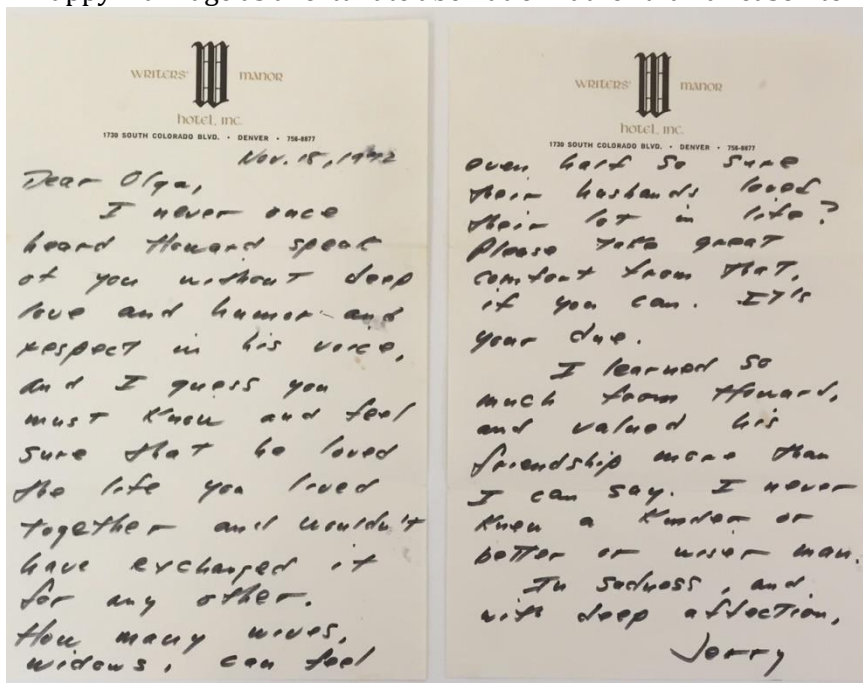 WRITERS' MANOR
HOTEL, INC.
1730 SOUTH COLORADO BLVD. • DENVER • 756-8877
Nov. 18, 1972
Dear Olga,
I never once
heard Howard speak
of you without deep
love and humor and
respect in his voice,
and I guess you
must know and feel
sure that he loved
the life you lived
together and wouldn't
have exchanged it
for any other.
How many wives,
widows, can feel
WRITERS' MANOR
HOTEL, INC.
1730 SOUTH COLORADO BLVD. • DENVER • 756-8877
even half so sure
their husbands loved
their lot in life?
Please take great
comfort from that,
if you can. It's
your due.
I learned so
much from Howard,
and valued his
friendship more than
I can say. I never
knew a kinder or
better or wiser man.
In sadness, and
with deep affection,
Jerry